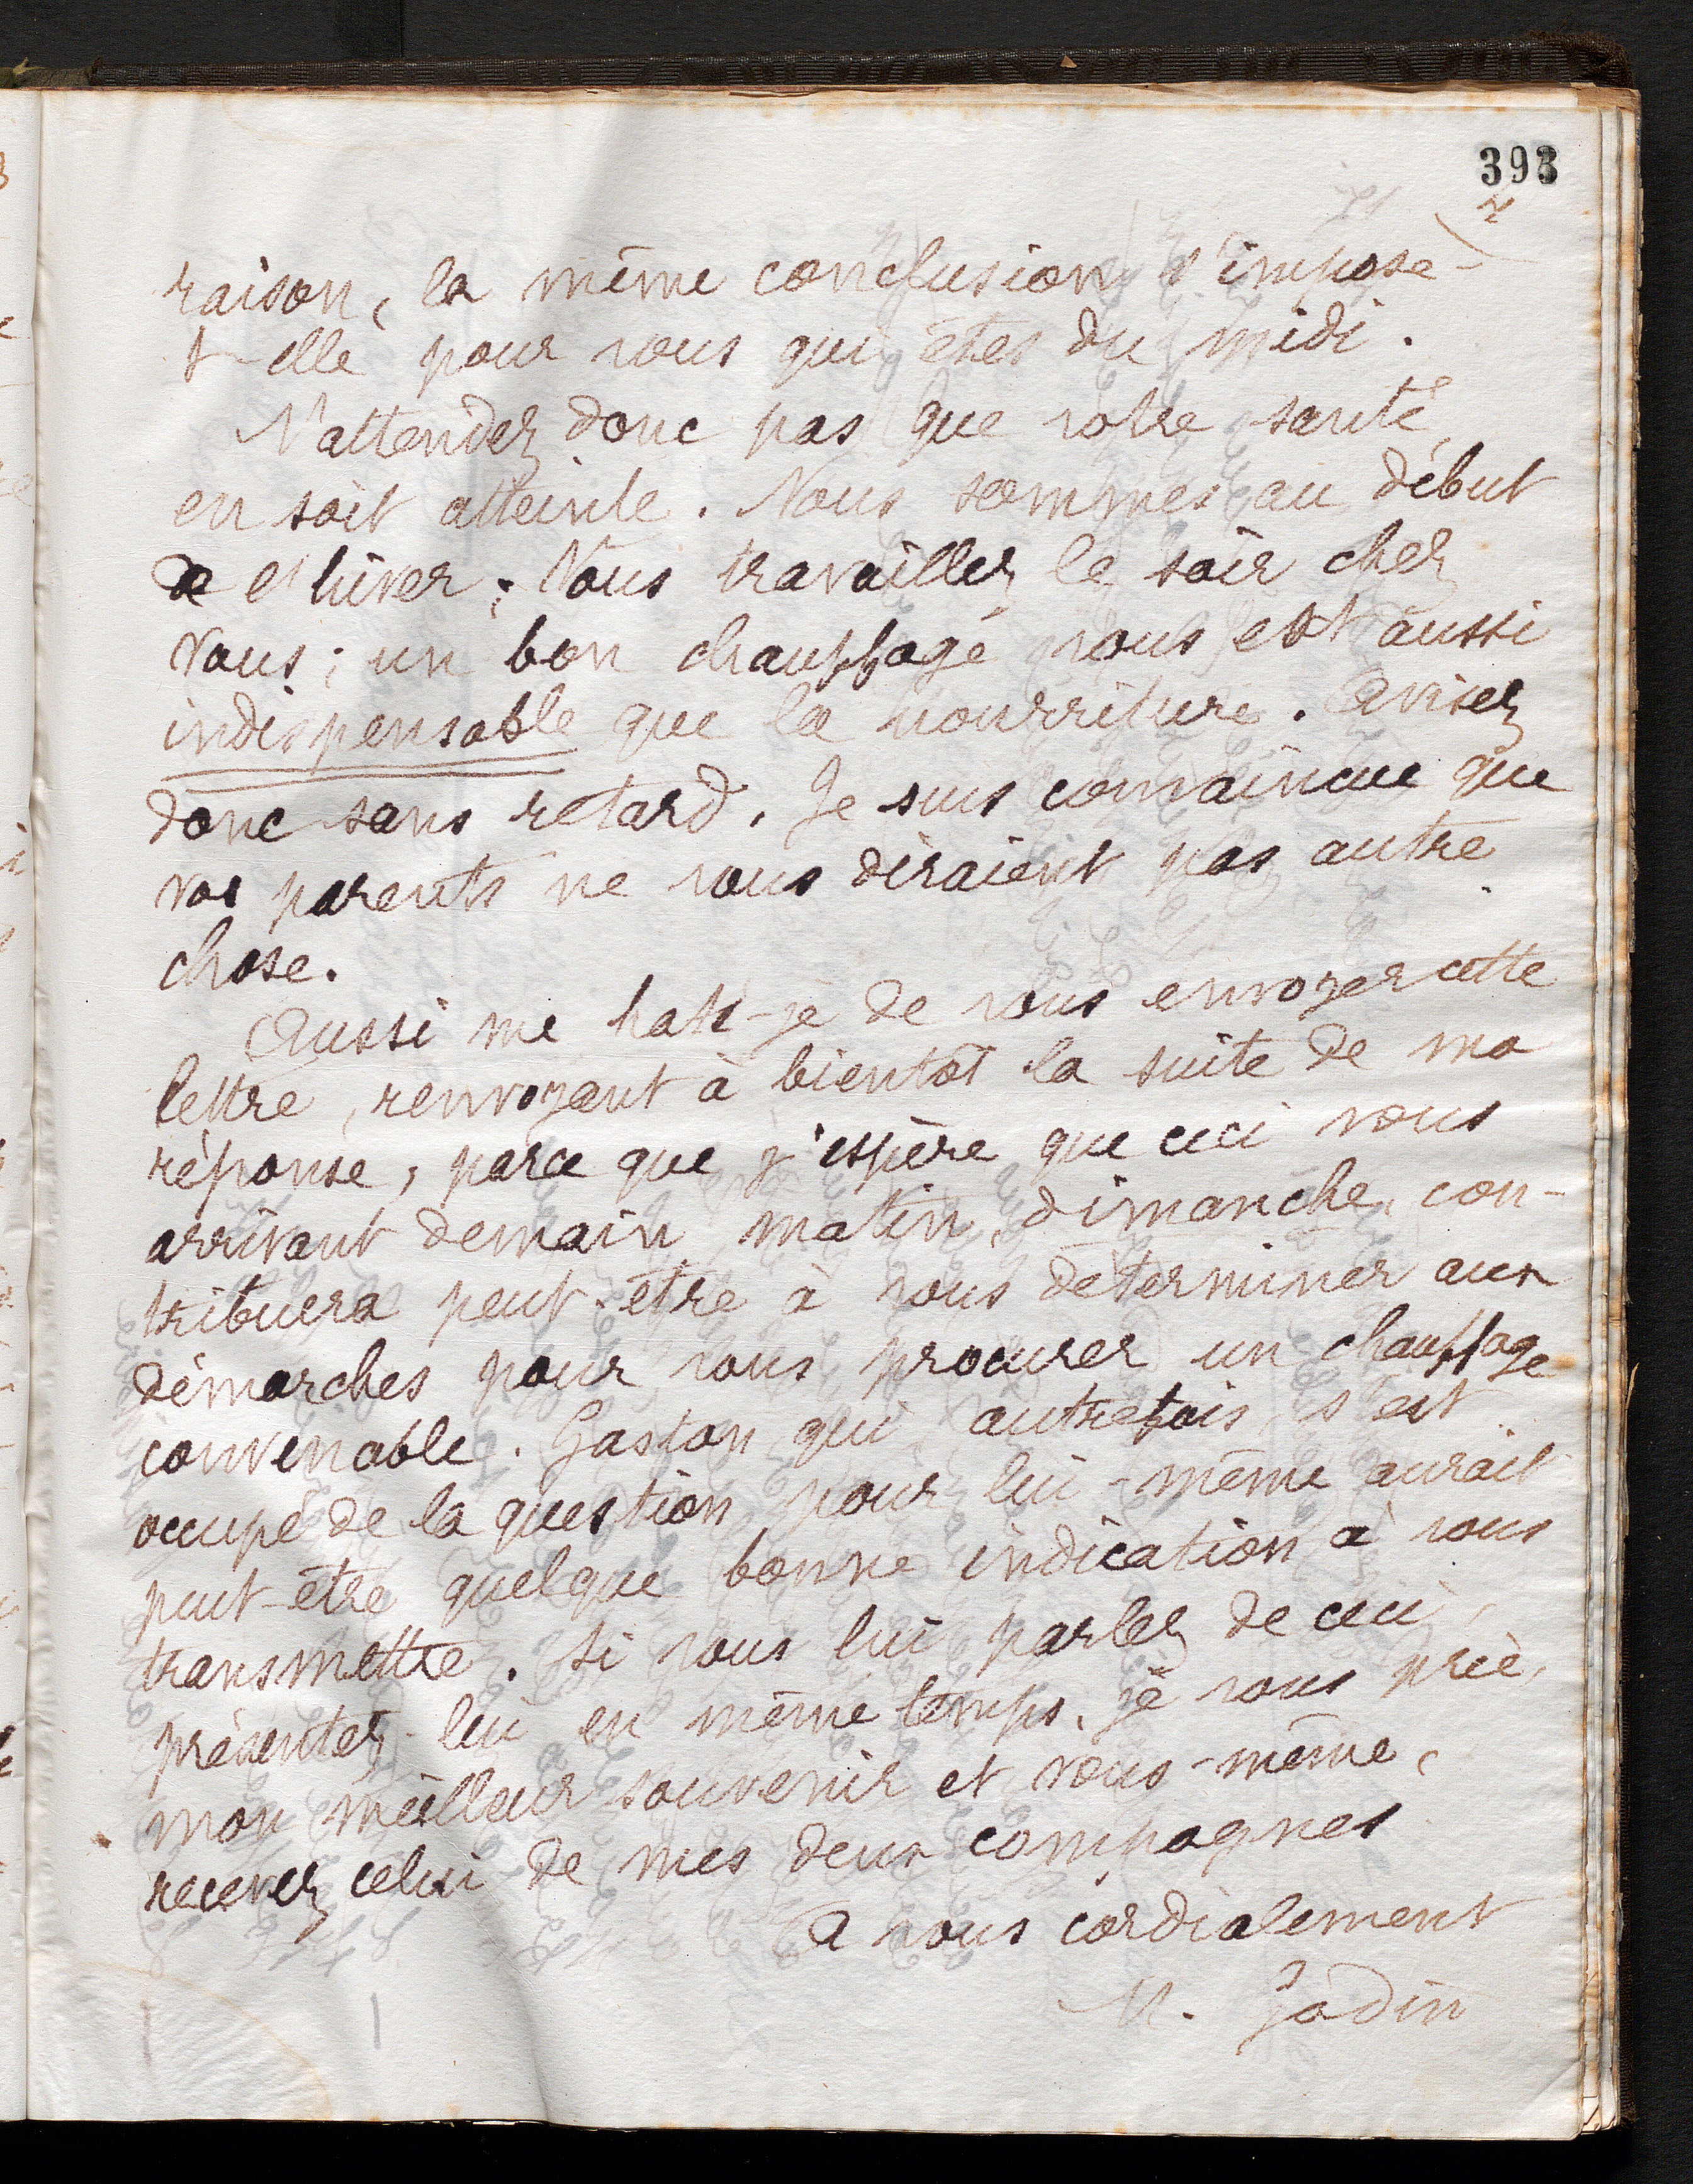 393
2
raison, la même conclusion s'impose-
t-elle pour vous qui êtes du midi.
N'attendez donc pas que votre santé
en soit atteinte. Nous sommes au début
de l'hiver; Vous travaillez le soir chez
vous; un bon chauffage vous est aussi
indispensable que la nourriture. Avisez
donc sans retard. Je suis convaincue que
vos parents ne vous diraient pas autre
chose.
Aussi me hate-je de vous envoyer cette
lettre, renvoyant à bientôt la suite de ma
réponse, parce que j'espère que ceci vous
arrivant demain matin, dimanche, con-
tribuera peut-être à vous déterminer aux
démarches pour vous procurer un chauffage
convenable. Gaston qui autrefois s'est
occupé de la question pour lui-même aurait
peut-être quelque bonne indication à vous
transmettre. Si vous lui parlez de ceci,
présentez-lui en même temps, je vous prie,
mon meilleur souvenir et vous-même,
recevez celui de mes deux compagnes
A vous cordialement
M. Godin